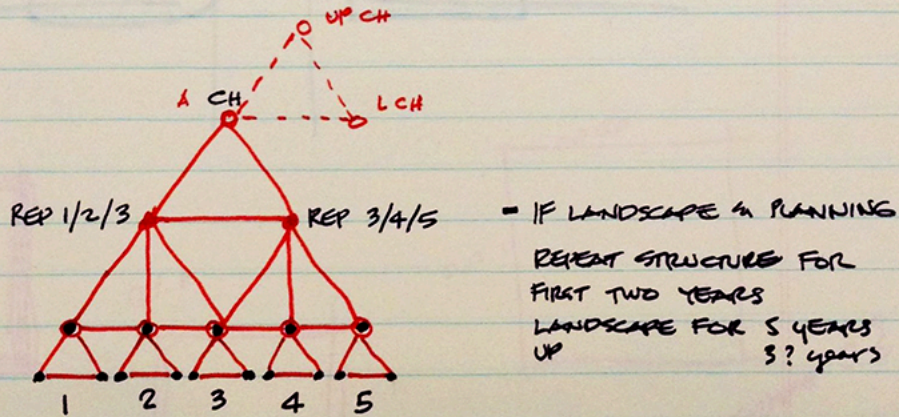 UP CH
A CH
L CH
REP 1/2/3
REP 3/4/5
- IF LANDSCAPE & PLANNING
REPEAT STRUCTURE FOR
FIRST TWO YEARS
LANDSCAPE FOR 5 YEARS
UP 3? years
1 2 3 4 5